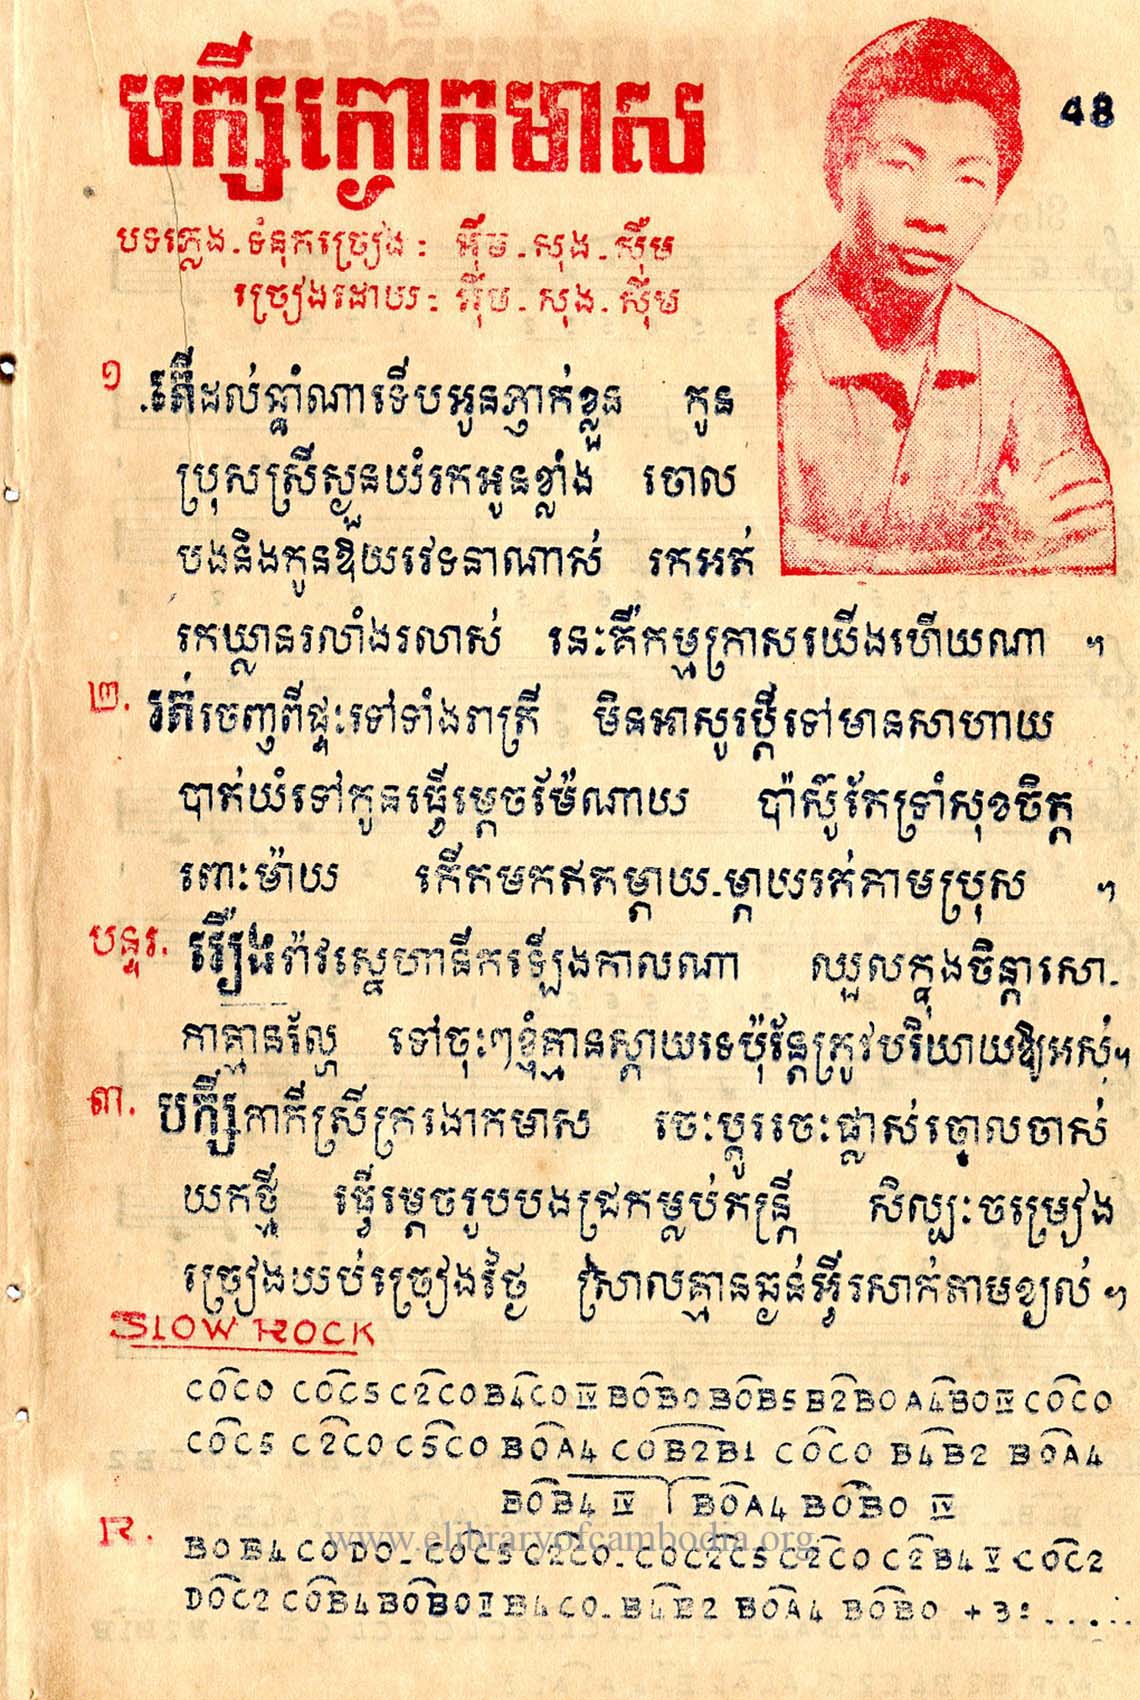 បក្សីក្ងោកមាស
48
បទភ្លេង.ទំនុកច្រៀង : អ៊ឹម . សុង . ស៊ឹម
ច្រៀងដោយ : អ៊ឹម . សុង . ស៊ឹម
១ .តើដល់ឆ្នាំណាទើបអូនភ្ញាក់ខ្លួន កូន
ប្រុសស្រីស្ងួនយំរកអូនខ្លាំង ចោល
បងនិងកូនឱ្យវេទនាណាស់ រកអត់
រកឃ្លានរលាំងរលាស់ នេះគឺកម្មក្រាសយើងហើយណា ។
២. រត់ចេញពីផ្ទះទៅទាំងរាត្រី មិនអាសូរប្ដីទៅមានសាហាយ
បាត់យំទៅកូនធ្វើម្ដេចម៉ែណាយ ប៉ាស៊ូតែទ្រាំសុខចិត្ត
ពោះម៉ាយ កើតមកឥតម្ដាយ.ម្ដាយរត់តាមប្រុស ។
បន្ទរ. រឿងរ៉ាវស្នេហានឹកឡើងកាលណា ឈួលក្នុងចិន្តាសោ-
កាគ្មានល្ហែ ទៅចុះៗខ្ញុំគ្មានស្ដាយទេប៉ុន្តែត្រូវបរិយាយឱ្យអស់។
៣. បក្សីកាកីស្រីក្រងោកមាស ចេះប្ដូរចេះផ្លាស់ចោលចាស់
យកថ្មី ធ្វើម្ដេចរូបបងជ្រកម្លប់តន្ត្រី សិល្បៈចម្រៀង
ច្រៀងយប់ច្រៀងថ្ងៃ ស្រាលគ្មានធ្ងន់អ្វីរសាត់តាមខ្យល់ ។
SLOW ROCK
COCO COC5 C2COB4COIVBOBOBOB5B2BOA4BOIVCOCO
COC5 C2CO C5CO BOA4 COB2B1 COCO B4B2 BOA4
BOB4 IV BOA4 BOBO IV
R. BOB4CODO-COC5C2CO-COC2C5C2CO C2B4 V-COC2
DOC2 COB4BOBOIIB4CO-B4B2 BOA4 BOBO + 3: .....
www.elibraryofcambodia.org